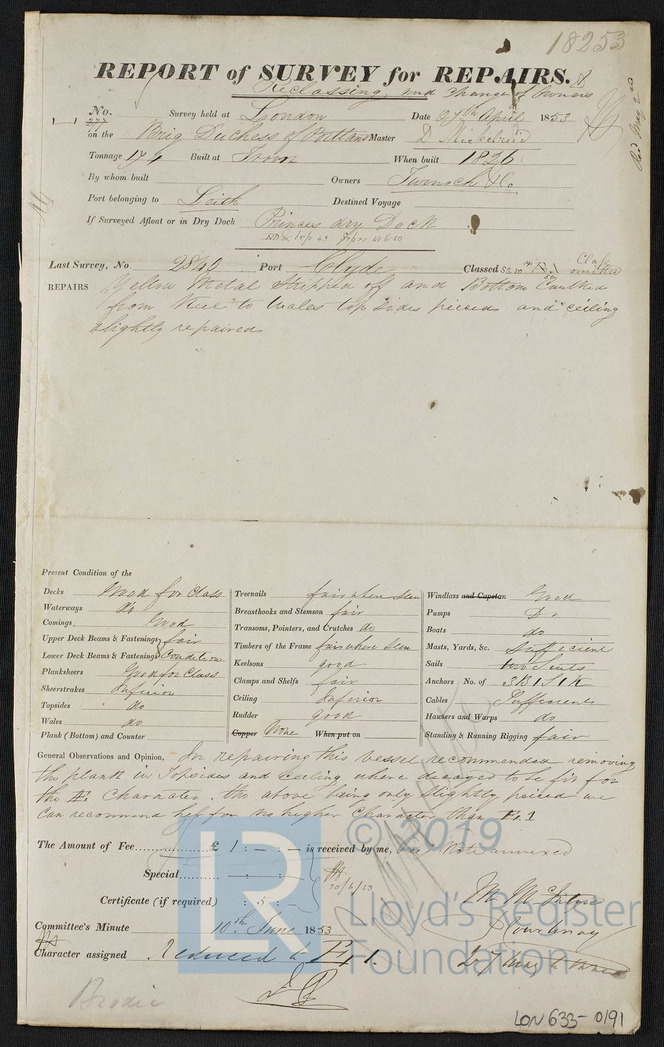 18253
REPORT of SURVEY for REPAIRS.
Reclassing, and change of Owners
No. Survey held at London Date 29th April 1853
on the Brig Duchess of Portland Master D
Tonnage 174 Built at Troon When built 1826
By whom built Owners Turnock & Co.
Port belonging to Leith Destined Voyage
If Surveyed Afloat or in Dry Dock Princes dry Dock
Last Survey, No. 2840 Port Clyde Classed Class omitted
REPAIRS Yellow Metal stripped off and Bottom Caulked
from Keel to Wales top sides pieced and ceiling
slightly repaired
Present Condition of the
Decks Good for Class
Waterways do
Comings Good
Upper Deck Beams & Fastenings fair
Lower Deck Beams & Fastenings Condition
Planksheers Good for Class
Sheerstrakes Inferior
Topsides Do
Wales do
Plank (Bottom) and Counter
Treenails fair where seen
Breasthooks and Stemson fair
Transoms, Pointers, and Crutches do
Timbers of the Frame fair where seen
Keelsons good
Clamps and Shelfs fair
Ceiling Inferior
Rudder good
Copper None When put on
Windlass and Capstan Good
Pumps Do
Boats do
Masts, Yards, &c. Sufficient
Sails two Suits
Anchors No. of 3 B 1 S 1 K
Cables Sufficient
Hawsers and Warps do
Standing & Running Rigging fair
General Observations and Opinion, In repairing this vessel recommended removing
the plank in Topsides and ceiling where decayed to be fit for
the Æ1 Character, the above being only slightly pieced we
can recommend her for no higher Character than E.1
The Amount of Fee £ 1 : - : - is received by me, Note annexed
Special - : - :
10/6/53
Certificate (if required) : 5 : -
Committee's Minute 10th June 1853
Character assigned Reduced to E 1.
Courtenay
Brodie
© 2019
LR
Lloyd's Register
Foundation
LON 633-0191